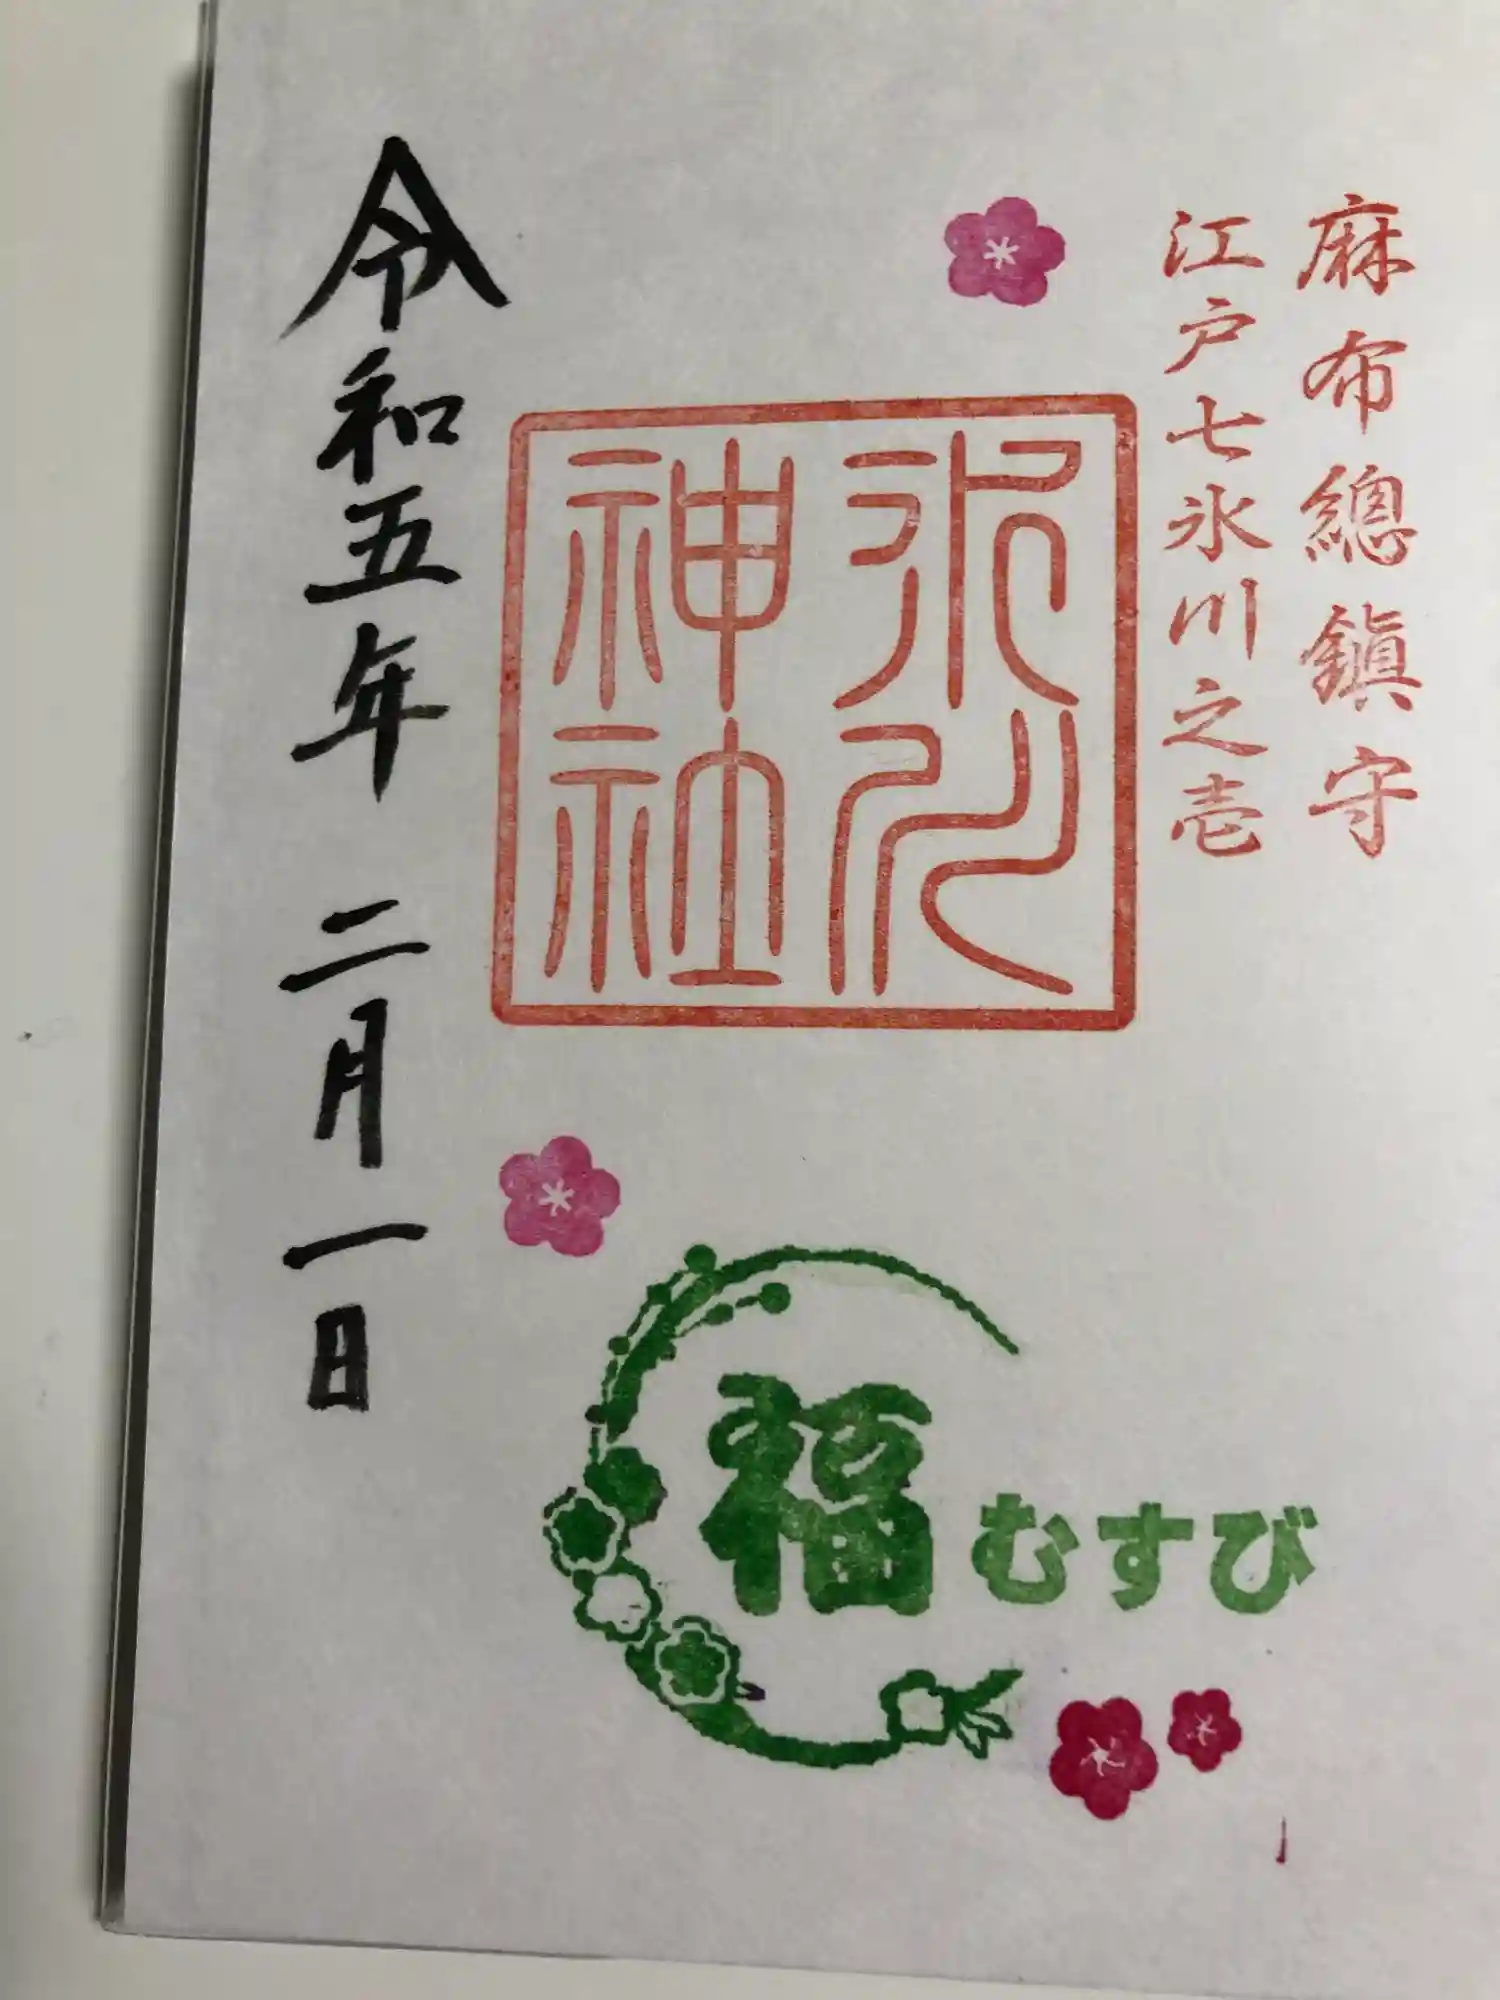 麻布總鎭守
江戸七氷川之壱
氷川神社
令和五年 二月一日
福むすび